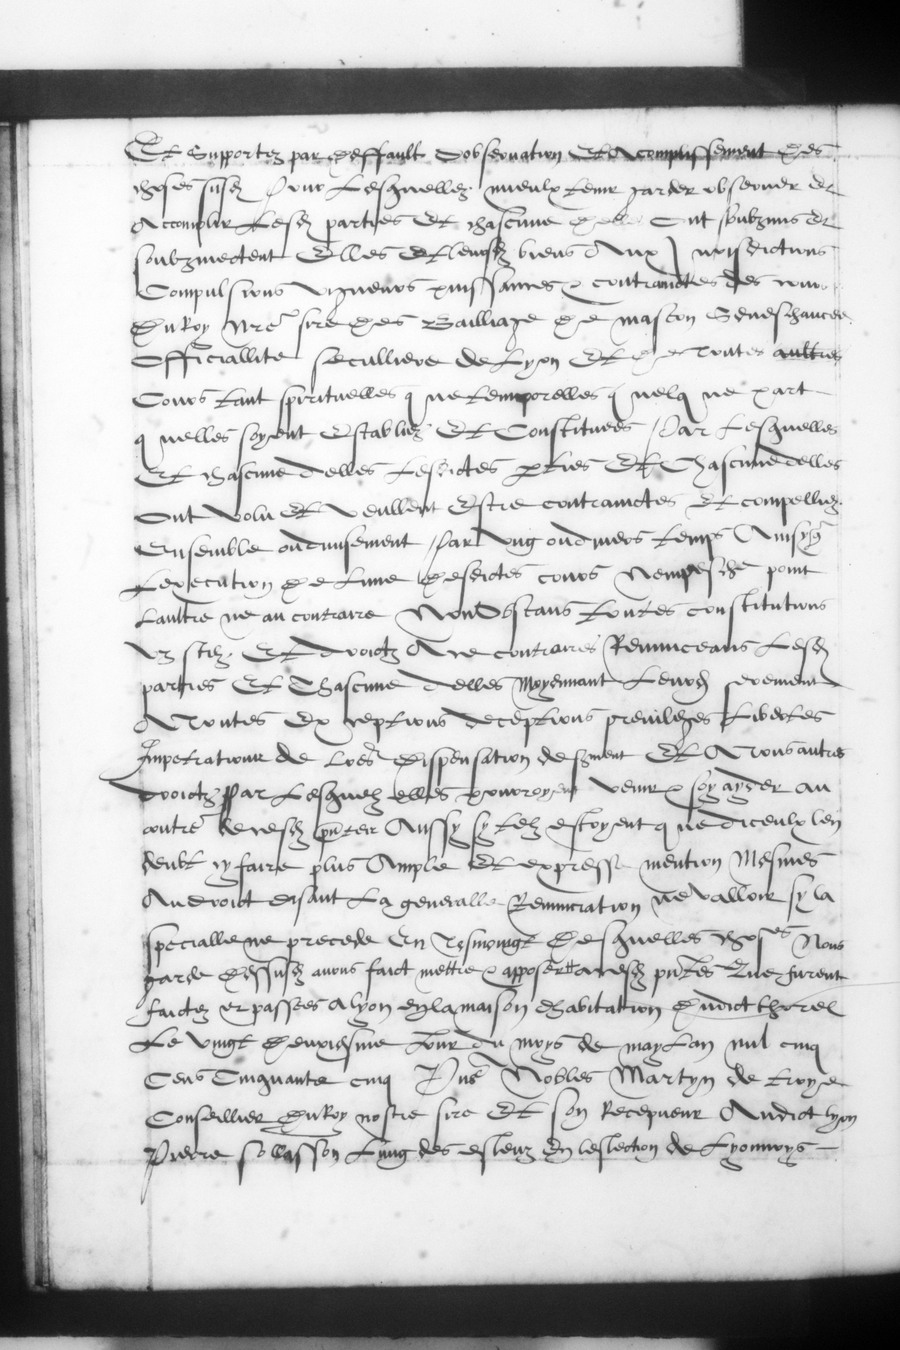 Et Supportez par deffault dobseruation et acomplissement des
choses susd Pour Lesquelles mieulx tenir garder obseruer et
Accomplir Lesd parties Et chascune delles Ont soubzmis et
soubzmectent Elles et leursd biens Aux Jurisdictions
Compulsions Vigueurs puissances & contrainctes des cours
du Roy nre sire des Bailliage de mascon Seneschaucee
Officiallite seculliere de Lyon Et de toutes aultres
Cours tant spirituelles que temporelles quelque part
quelles soyent Establies Et Constituees Par Lesquelles
Et chascune delles Lesdictes pties Et Chascune delles
Ont volu Et Veullent Estre contrainctes Et compellies
Ensemble ou diuisement Par Vng ou diuers temps Ainsy q
Lexecution de Lune desdictes cours Nempesche point
Laultre ne au contraire NonObstans toutes constitutions
Vz stilz Et droictz A ce contraires Renunceans Lesd
parties Et Chascune delles Moyennant Leurd serement
A toutes Exceptions deceptions preuileges Libertes
Impetrations de Lres dispensation de serment Et A tous autres
droictz Par Lesquelz elles pourroyent venir & soy ayder au
contre de cesd pntes Aussy sy telz estoyent que diceulx len
deubt cy faire plus Ample et expresse mention Mesmes
Au droict disant La generalle Renunciation ne valloir sy la
specialle ne precede En Tesmoingt Desquelles choses Nous
garde dessusd auons faict mettre & apposer a cesd pntes Que furent
faictes et passees a lyon en la maison dhabitation dudict thorel
Le vingt deuxiesme Jour du moys de may Lan mil cinq
Cens Cinquante cinq Pns Nobles Martyn de troye
Conseillier du Roy nostre sire Et son Recepueur Audict lyon
Pierre sollasson Lung des esleuz En leslection de Lyonnoys